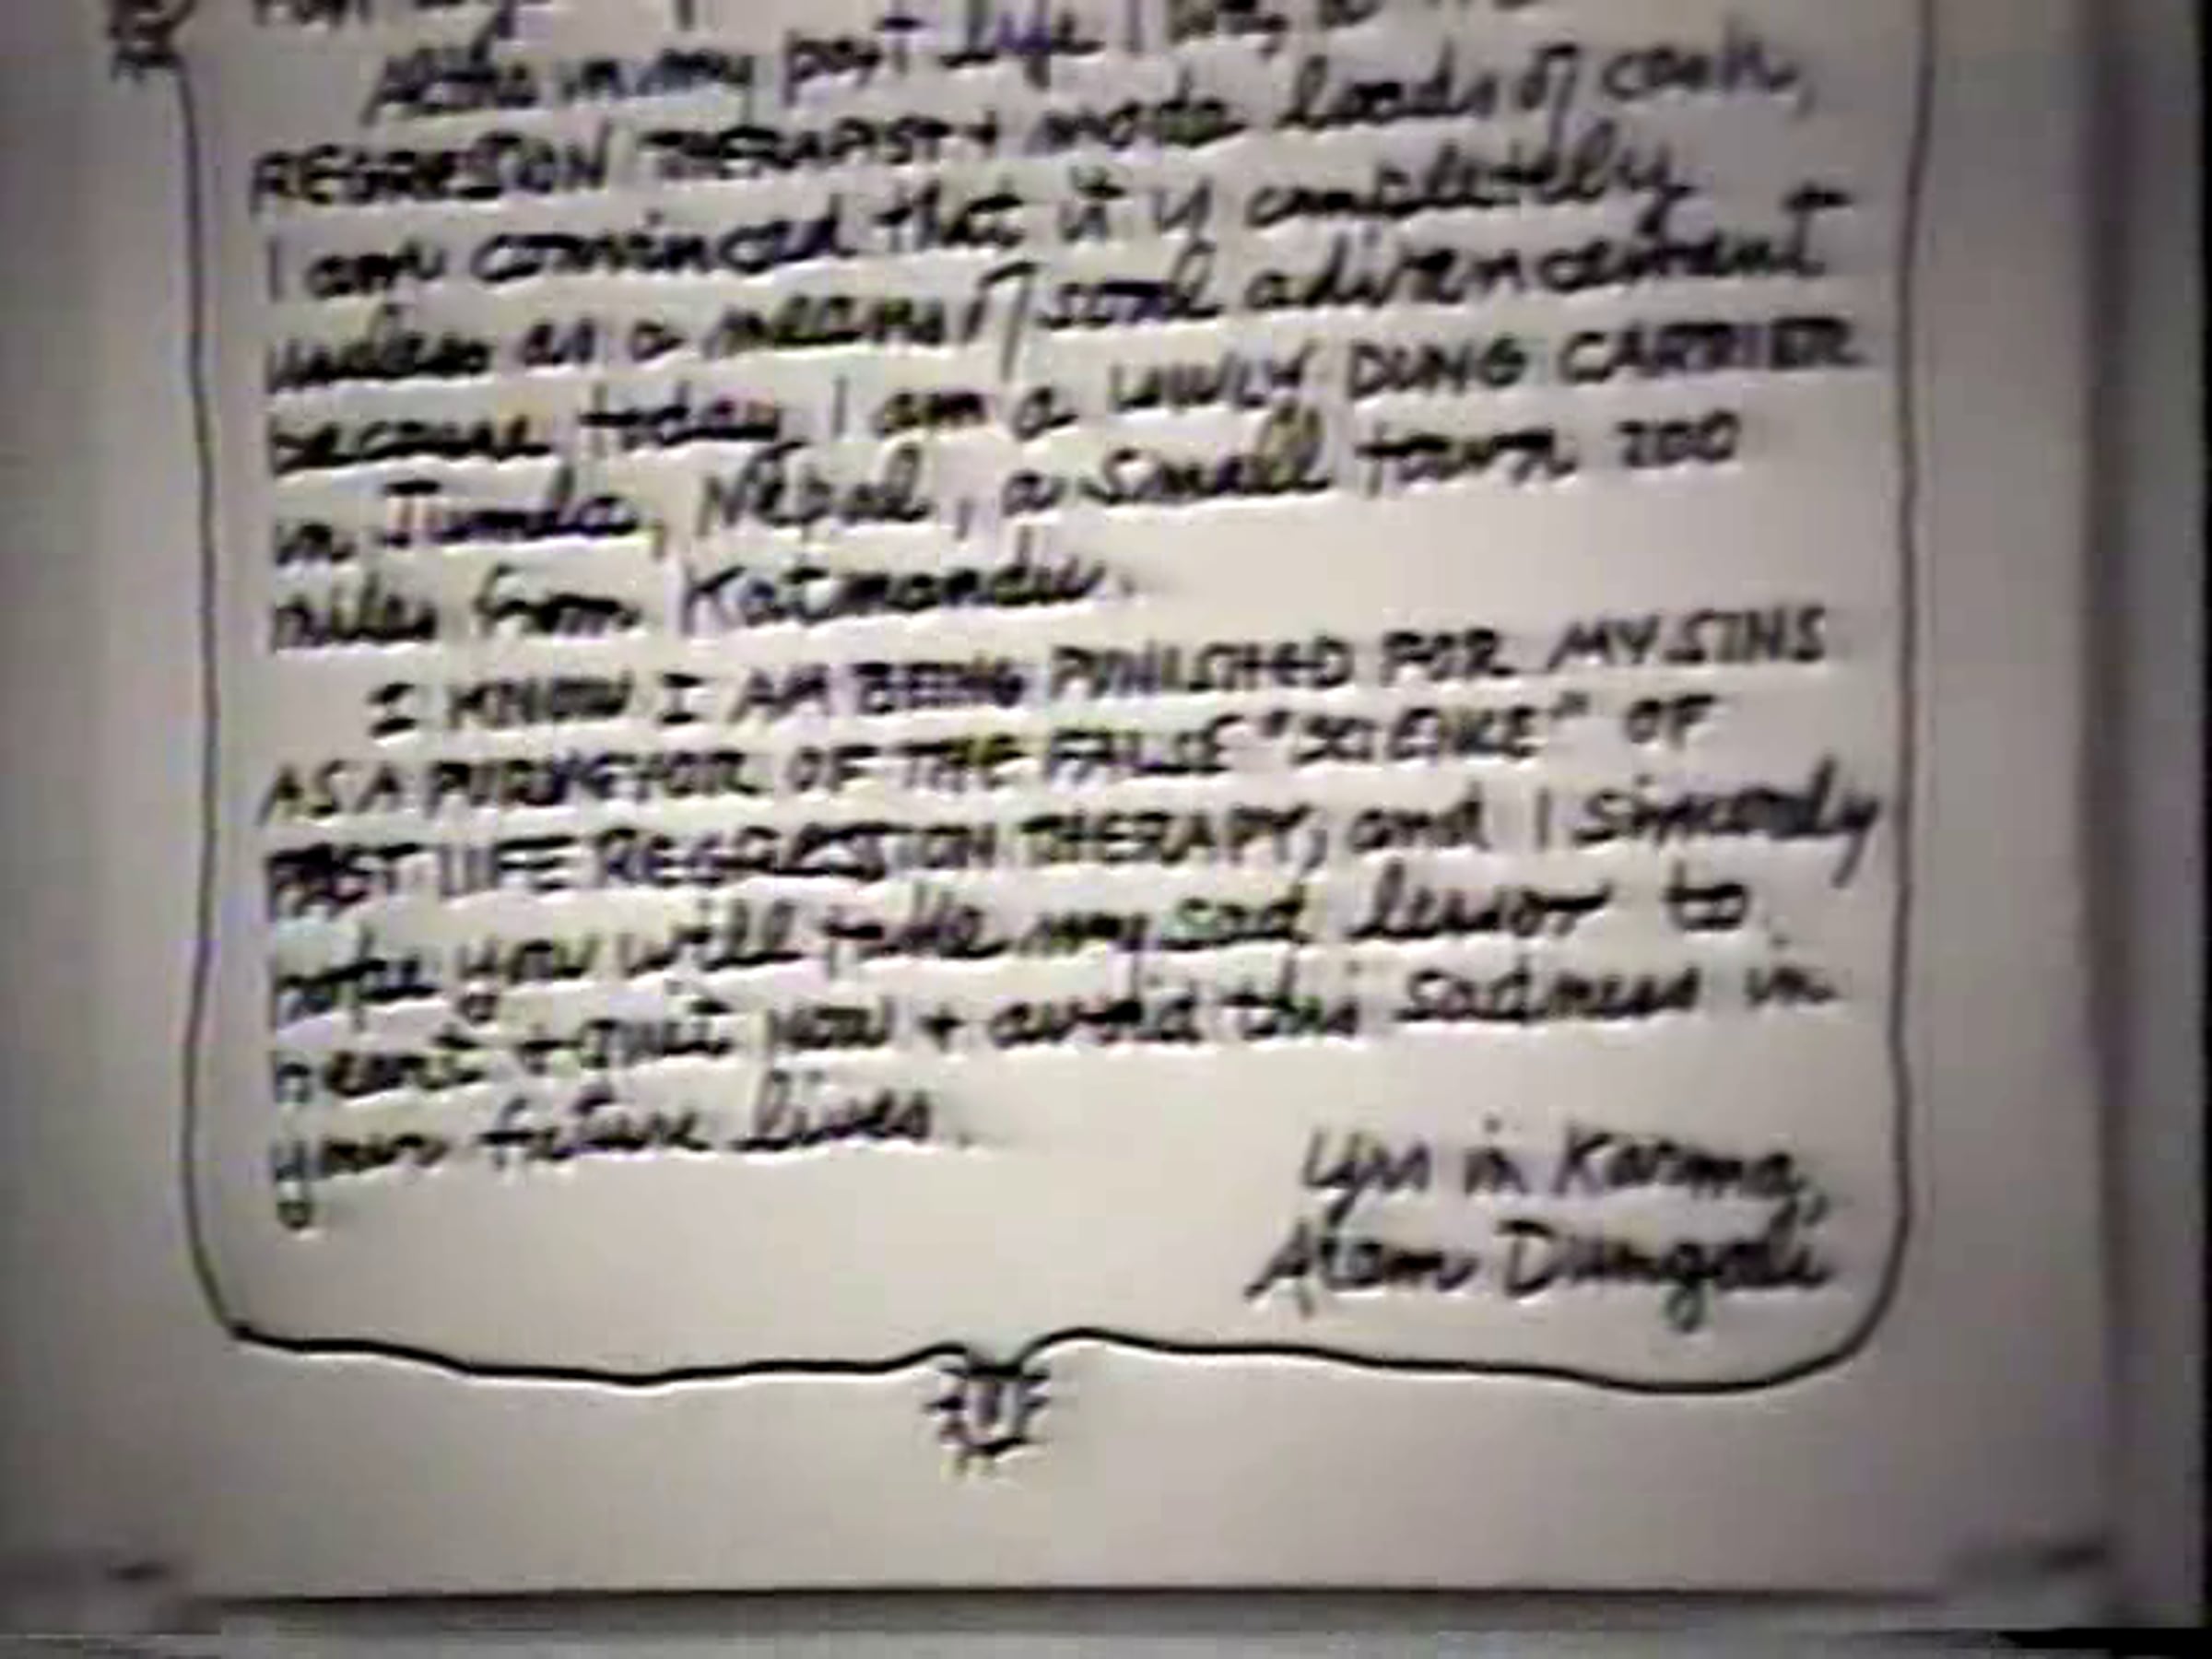 in my past life I was a
REGRESSION THERAPIST + made loads of cash,
I am convinced that it is completely
useless as a means of soul advancement
because today I am a LOWLY DUNG CARRIER
in Jumla, Nepal, a small town 200
miles from Katmandu.
I KNOW I AM BEING PUNISHED FOR MY SINS
AS A PURVEYOR OF THE FALSE "SCIENCE" OF
PAST LIFE REGRESSION THERAPY, and I sincerely
hope you will take my sad lesson to
heart + quit now + avoid this sadness in
your future lives.
in Karma,